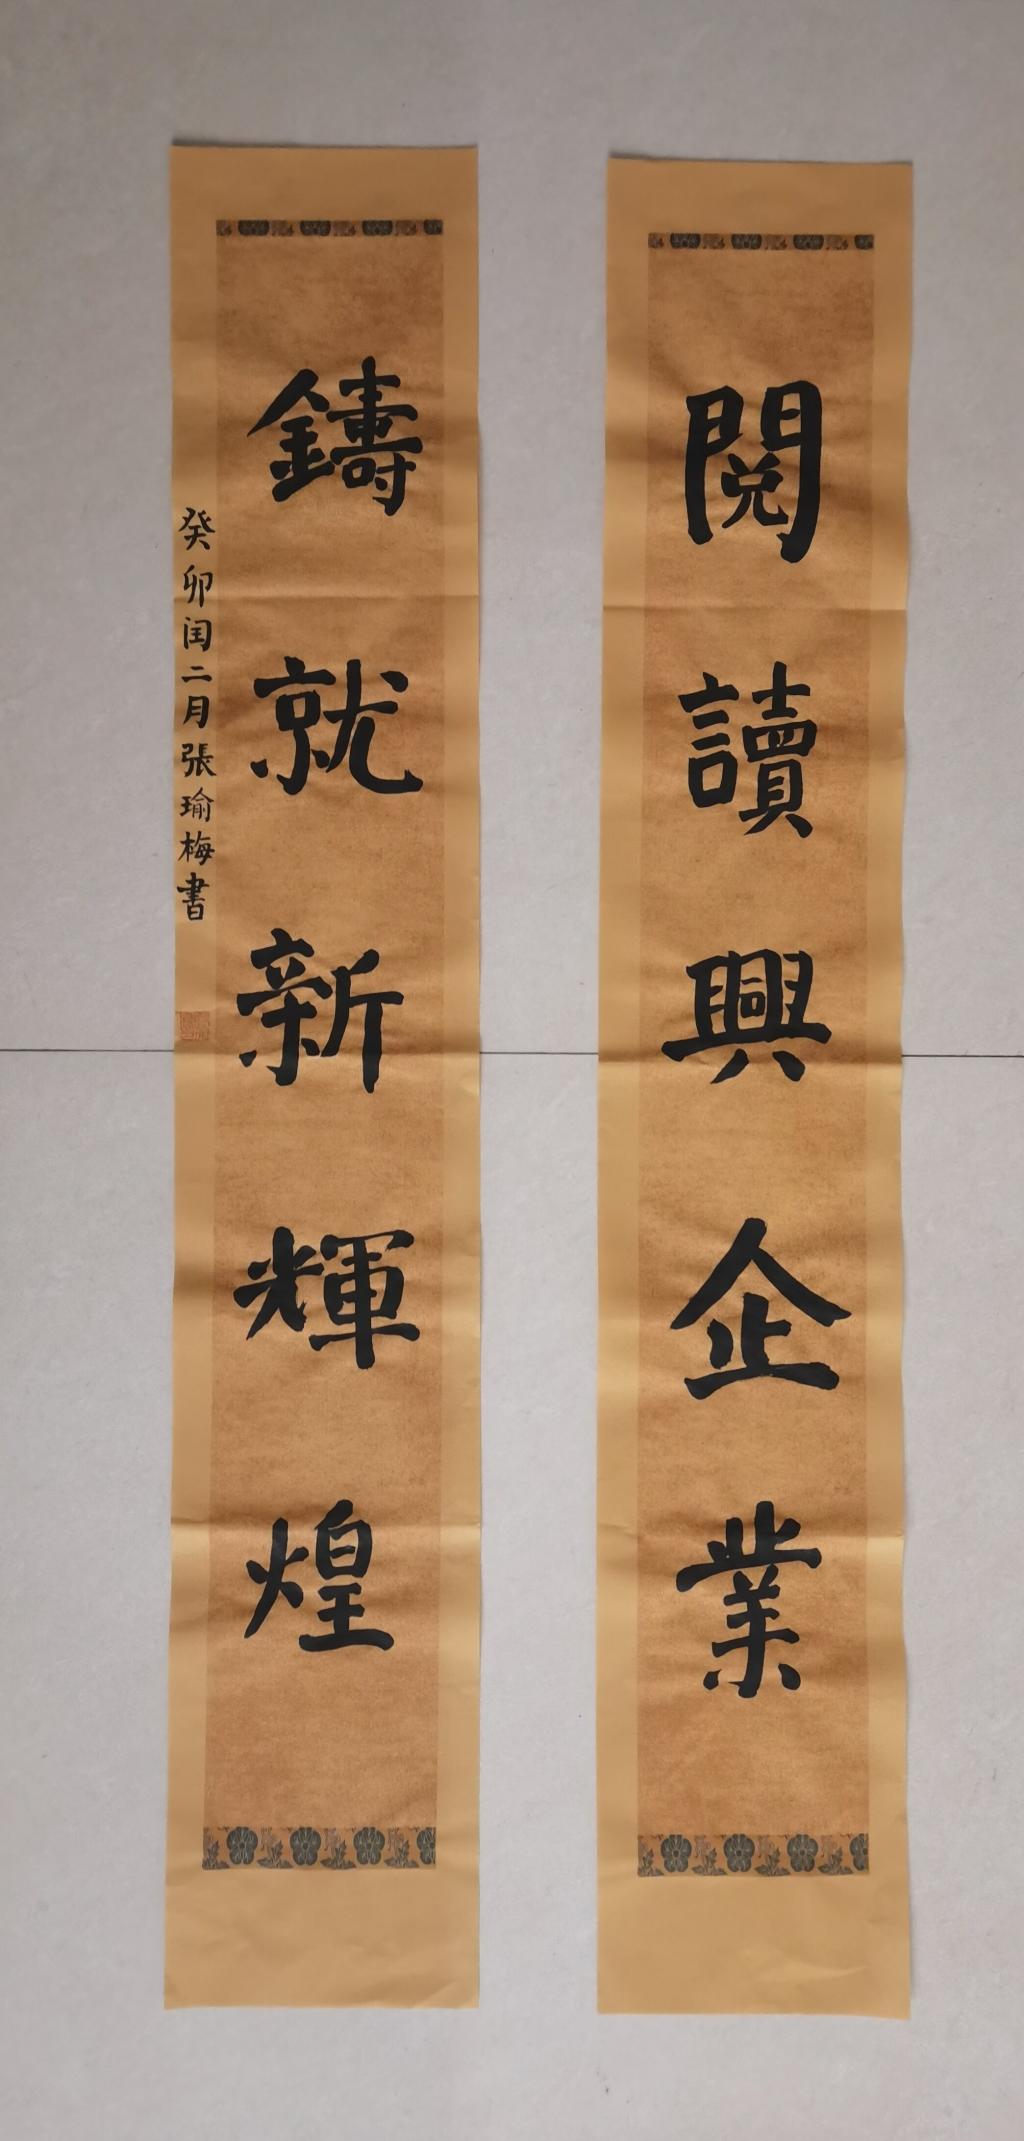 閱讀興企業
鑄就新輝煌
癸卯闰二月張瑜梅書